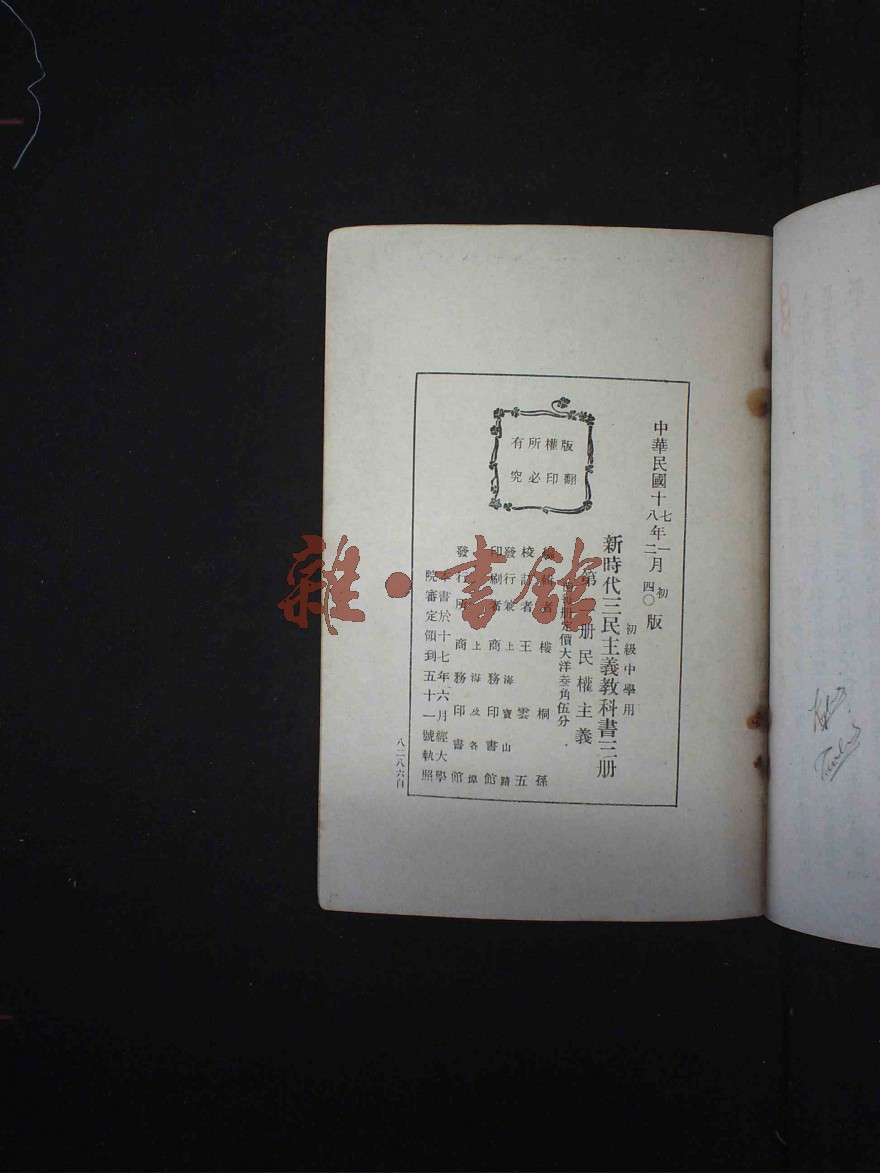 中華民國十七年一月初版
八 二 四〇
初級中學用
新時代三民主義教科書三册
第 册民權主義
册定價大洋叁角伍分
者 樓桐孫
校 者 王雲五
發行兼 上海寶山路
印刷者 商務印書館
上海及各埠
發行所 商務印書館
書於十七年六月經大學
院審定領到五十一號執照
版權所有
翻印必究
八二八六自
雜·書館